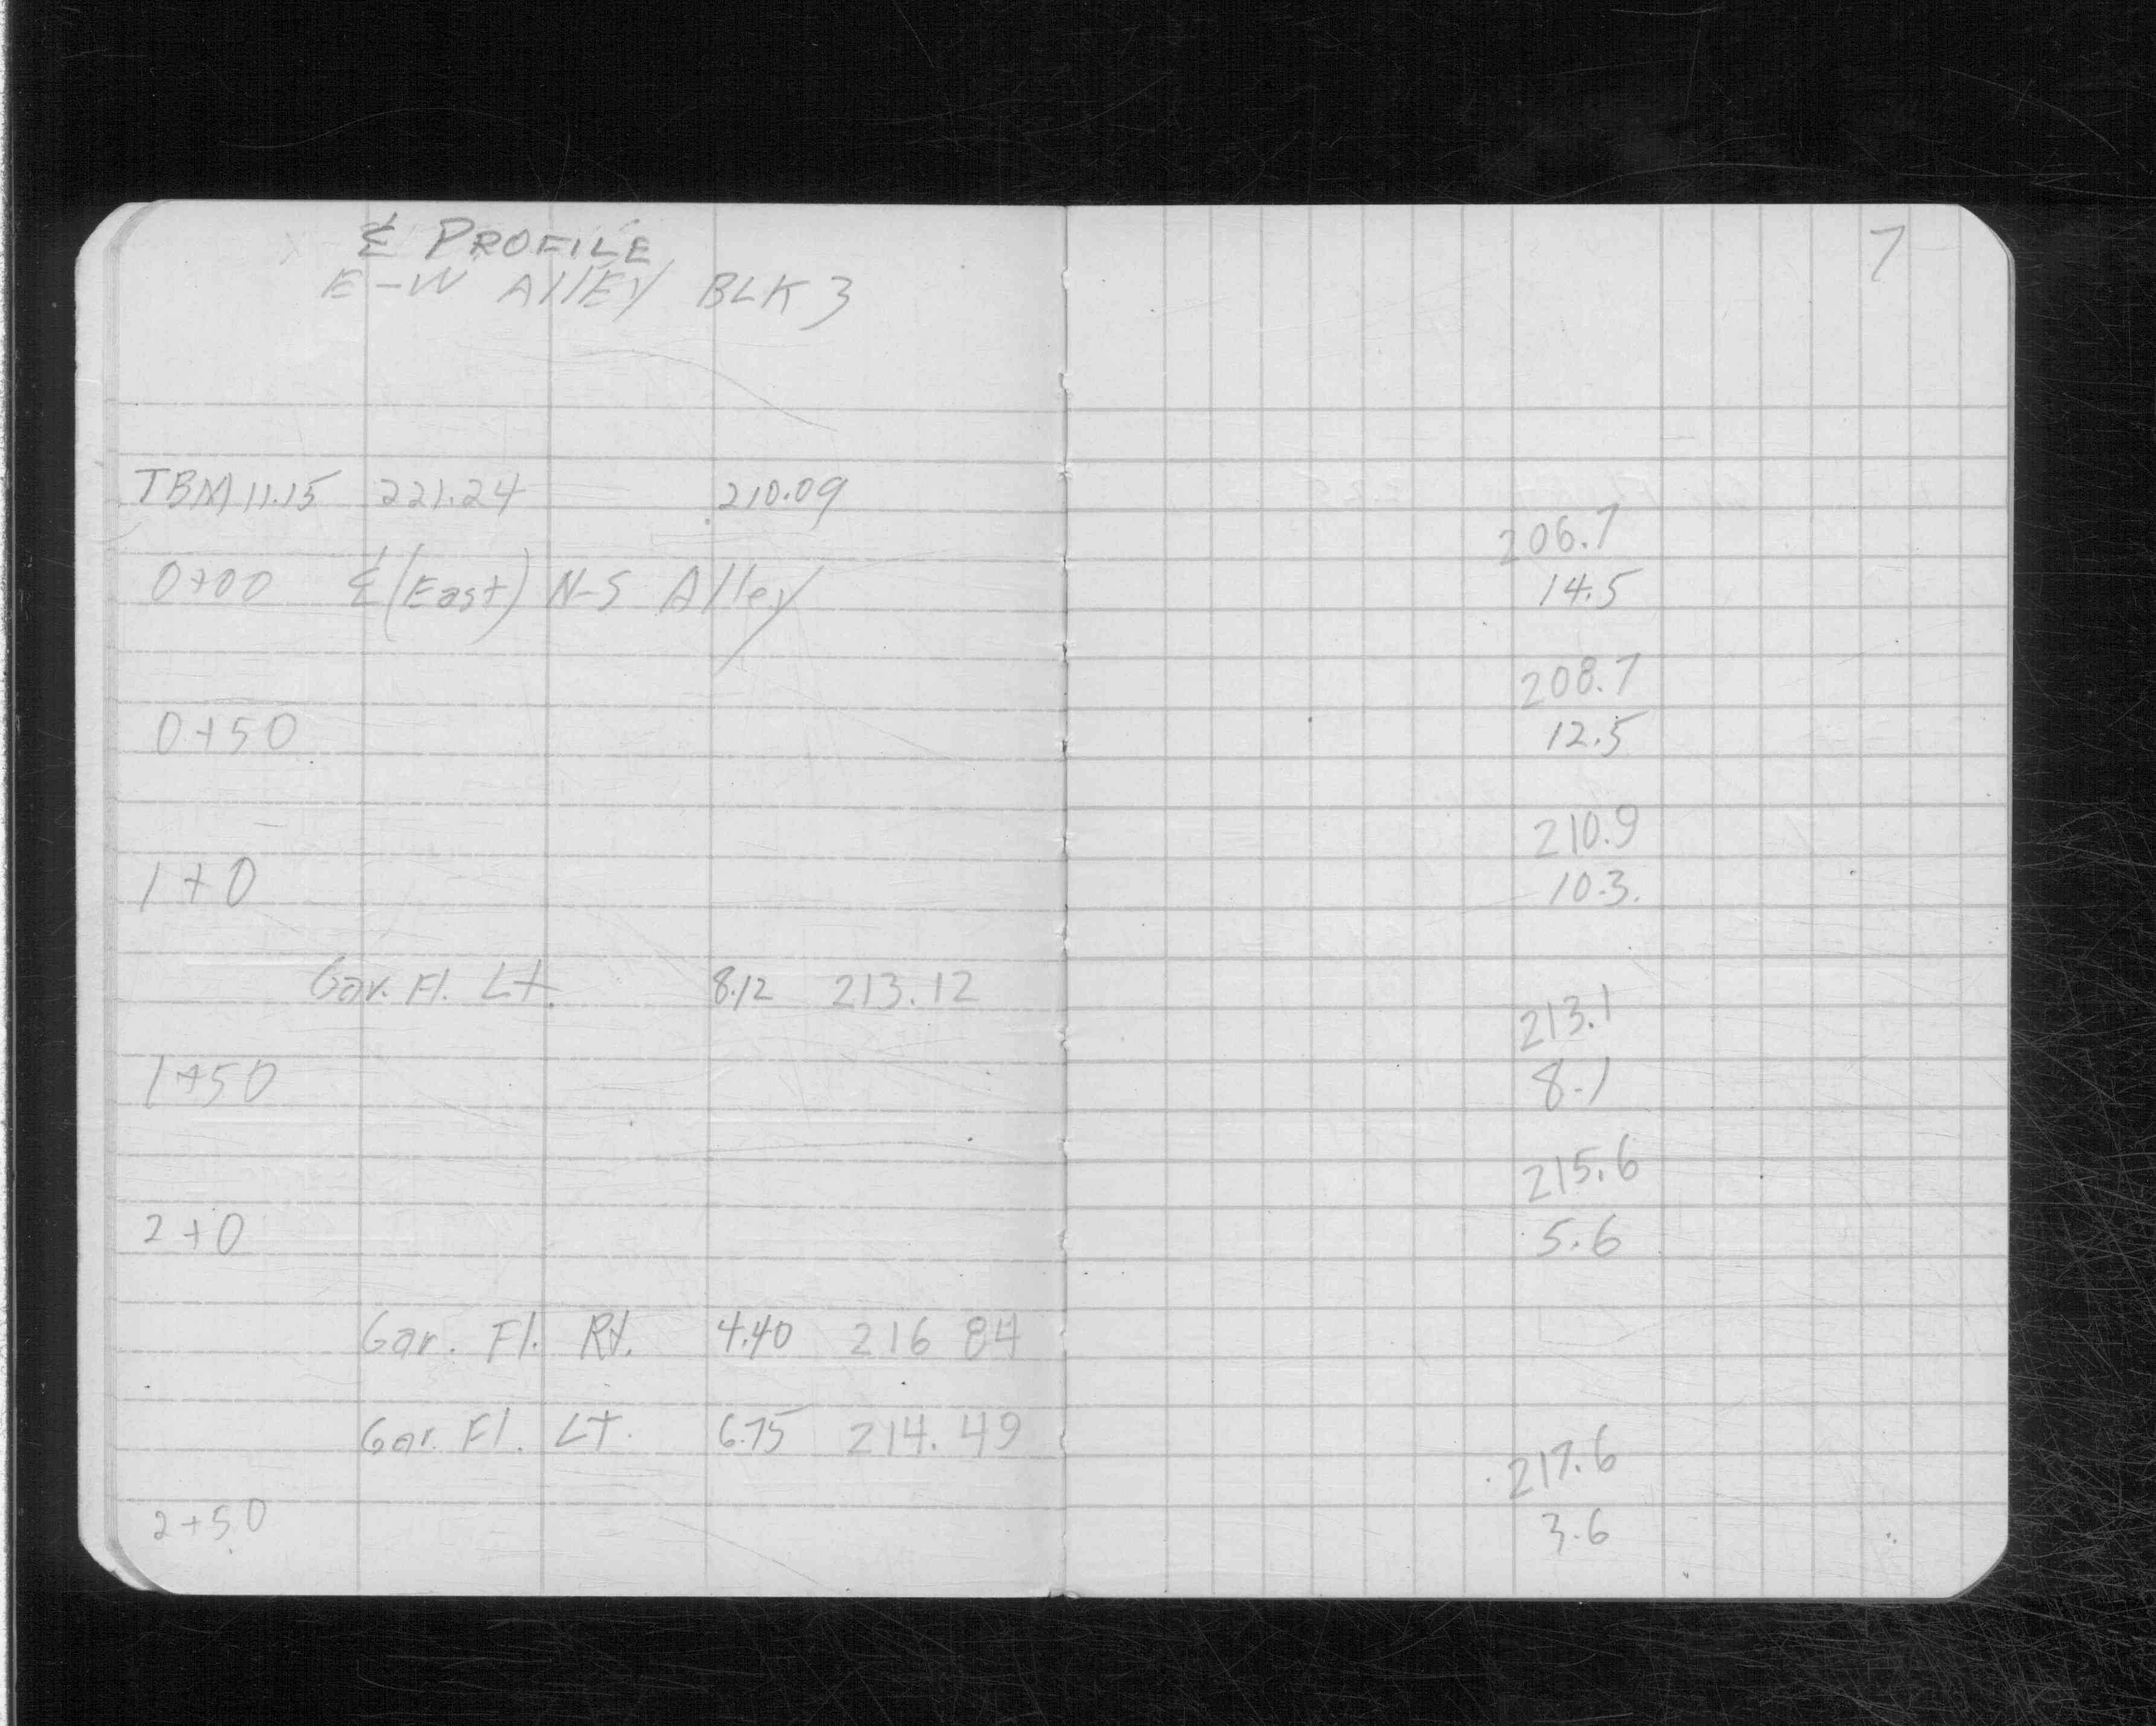 ℄ PROFILE
E-W AllEY BLK 3
7
TBM 11.15 221.24 210.09
206.7
0+00 ℄ (East) N-S Alley 14.5
208.7
0+50 12.5
210.9
1+0 10.3.
Gar. Fl. Lt. 8.12 213.12
213.1
1+50 8.1
215.6
2+0 5.6
Gar. Fl. Rt. 4.40 216 84
Gar. Fl. LT. 6.75 214.49
217.6
2+50 3.6